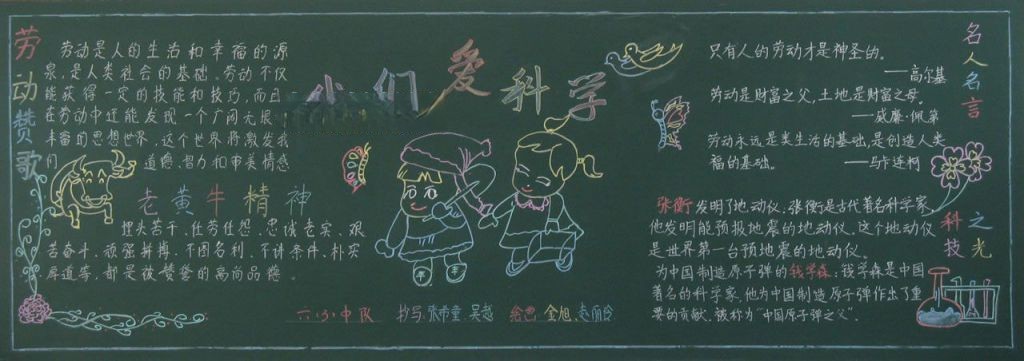 劳动赞歌
劳动是人的生活和幸福的源
泉,是人类社会的基础。劳动不仅
能获得一定的技能和技巧,而且
在劳动中还能发现一个广阔无垠
丰富的思想世界,这个世界将激发我
们 道德、智力和审美情感
老黄牛精神
埋头苦干、任劳任怨、忠诚老实、艰
苦奋斗、顽强拼搏、不图名利、不讲条件、朴实
厚道等,都是被赞誉的高尚品德。
我们爱科学
六(3)中队 抄写:张希童 吴越 绘画 金旭
名人名言
只有人的劳动才是神圣的。
——高尔基
劳动是财富之父,土地是财富之母。
——威廉·佩第
劳动永远是类生活的基础,是创造人类
福的基础。 ——马卡连柯
科技之光
张衡发明了地动仪:张衡是古代著名科学家
他发明能预报地震的地动仪,这个地动仪
是世界第一台预地震的地动仪。
为中国制造原子弹的钱学森:钱学森是中国
著名的科学家,他为中国制造原子弹作出了重
要的贡献,被称为“中国原子弹之父”。